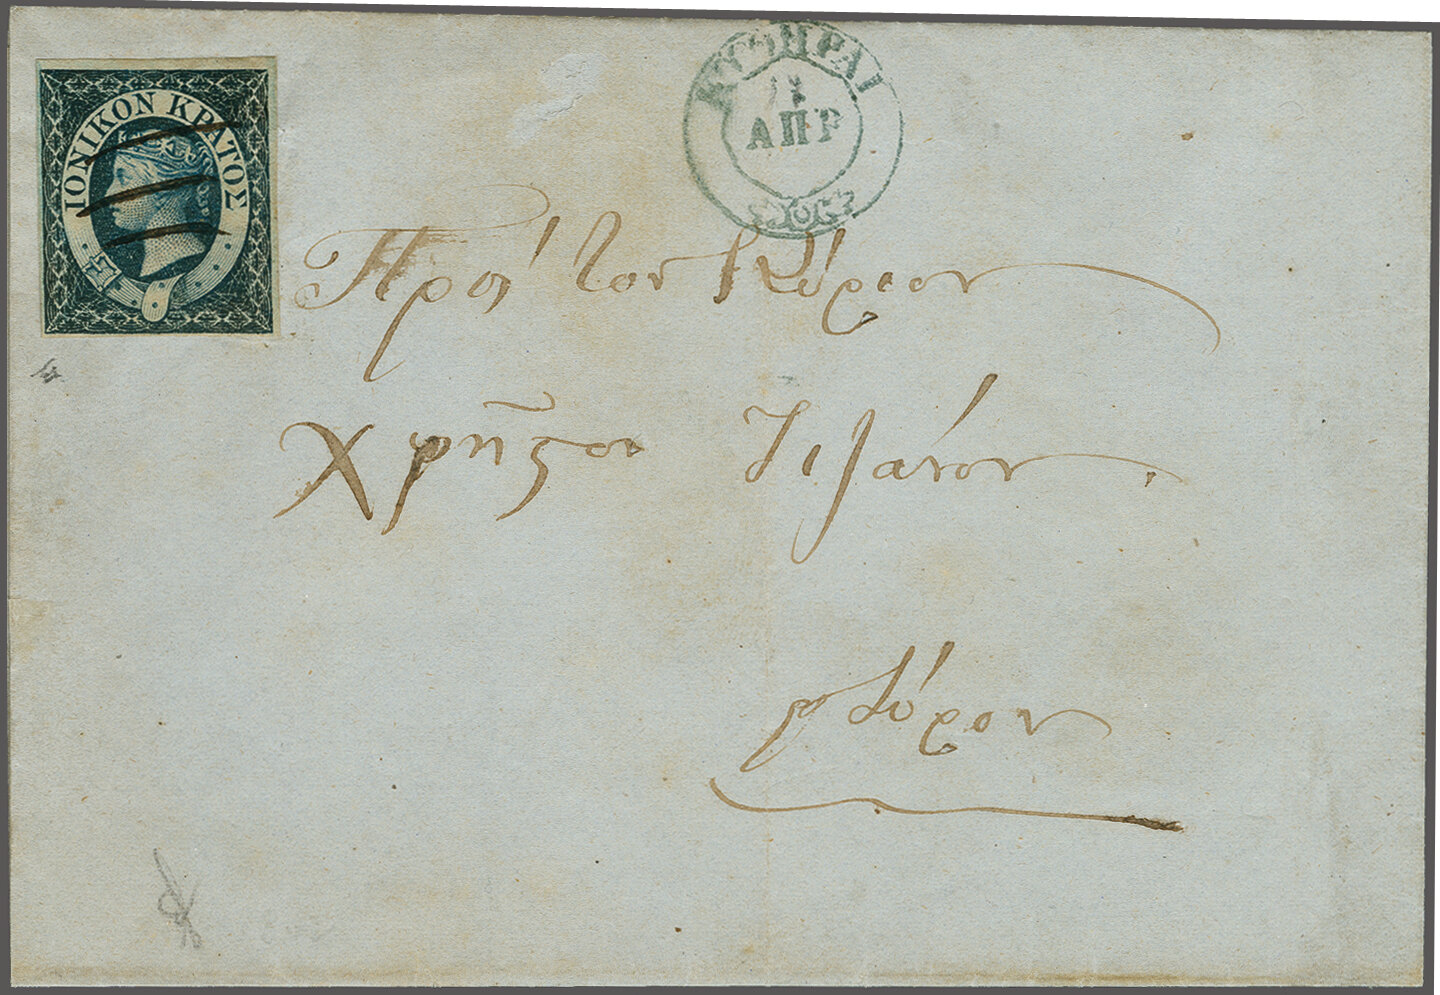 ΙΟΝΙΚΟΝ ΚΡΑΤΟΣ
ΚΥΘΗΡΑΙ
ΑΠΡ
Πρὸς τὸν Κύριον
Χρῆστον
Σύρον